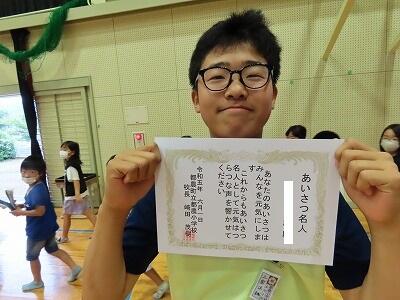 あいさつ名人
あなたのあいさつは
みんなを元気にしま
す
これからもあいさつ
名人として元気はつ
らつな声を響かせて
ください
令和五年 六月一日
都農町立都農小学校
校長